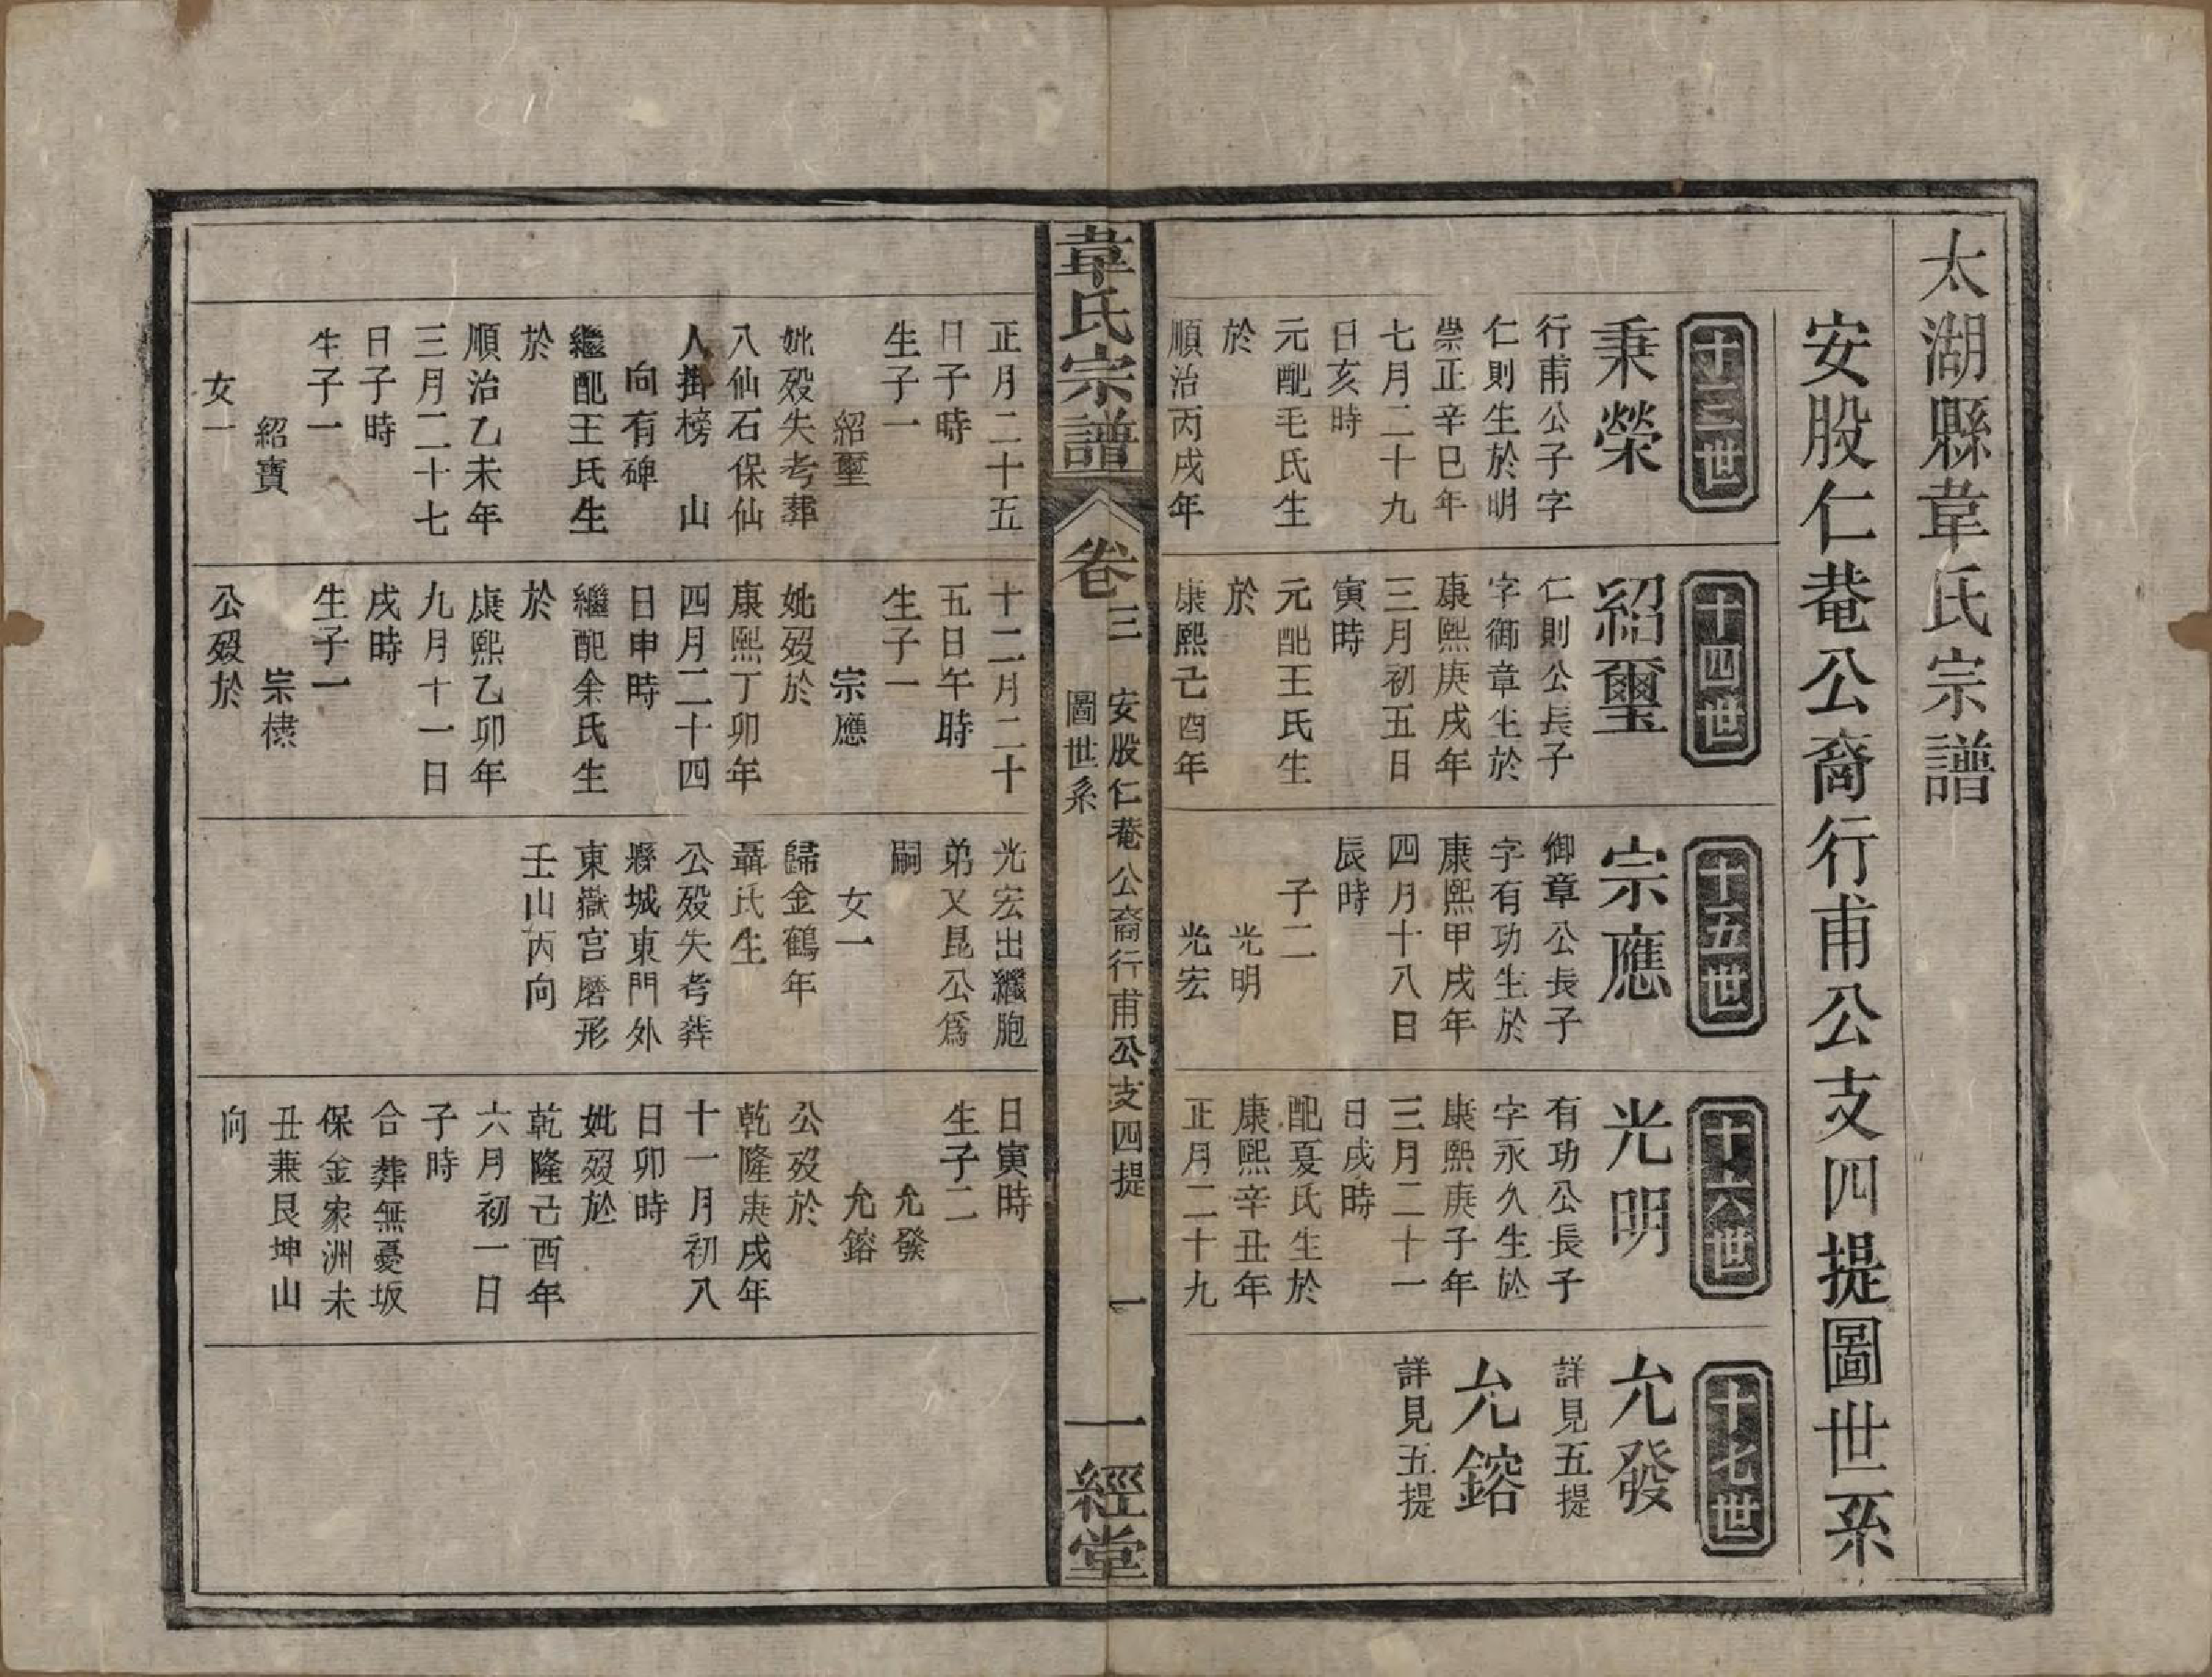 太湖縣韋氏宗譜
安股仁菴公裔行甫公支四提圖世系
十三世
秉榮
行甫公子字
仁則生於明
崇正辛巳年
七月二十九
日亥時
元配毛氏生
於
順治丙戌年
正月二十五
日子時
生子一
紹璽
妣歿失考葬
八仙石保仙
人掛榜 山
向有碑
繼配王氏生
於
順治乙未年
三月二十七
日子時
生子一
紹寶
女一
十四世
紹璽
仁則公長子
字御章生於
康熙庚戌年
三月初五日
寅時
元配王氏生
於
康熙己酉年
十二月二十
五日午時
生子一
宗應
妣歿於
康熙丁卯年
四月二十四
日申時
繼配余氏生
於
康熙乙卯年
九月十一日
戌時
生子一
宗橞
公歿於
十五世
宗應
御章公長子
字有功生於
康熙甲戌年
四月十八日
辰時
子二
光明
光宏
光宏出繼胞
弟又昆公爲
嗣
女一
歸金鶴年
聶氏生
公歿失考葬
縣城東門外
東嶽宫磨形
壬山丙向
十六世
光明
有功公長子
字永久生於
康熙庚子年
三月二十一
日戌時
配夏氏生於
康熙辛丑年
正月二十九
日寅時
生子二
允發
允鎔
公歿於
乾隆庚戌年
十一月初八
日卯時
妣歿於
乾隆己酉年
六月初一日
子時
合葬無憂坂
保金家洲未
丑兼艮坤山
向
十七世
允發
詳見五提
允鎔
詳見五提
韋氏宗譜
卷三
安股仁菴公裔行甫公支四提
圖世系
一
一經堂